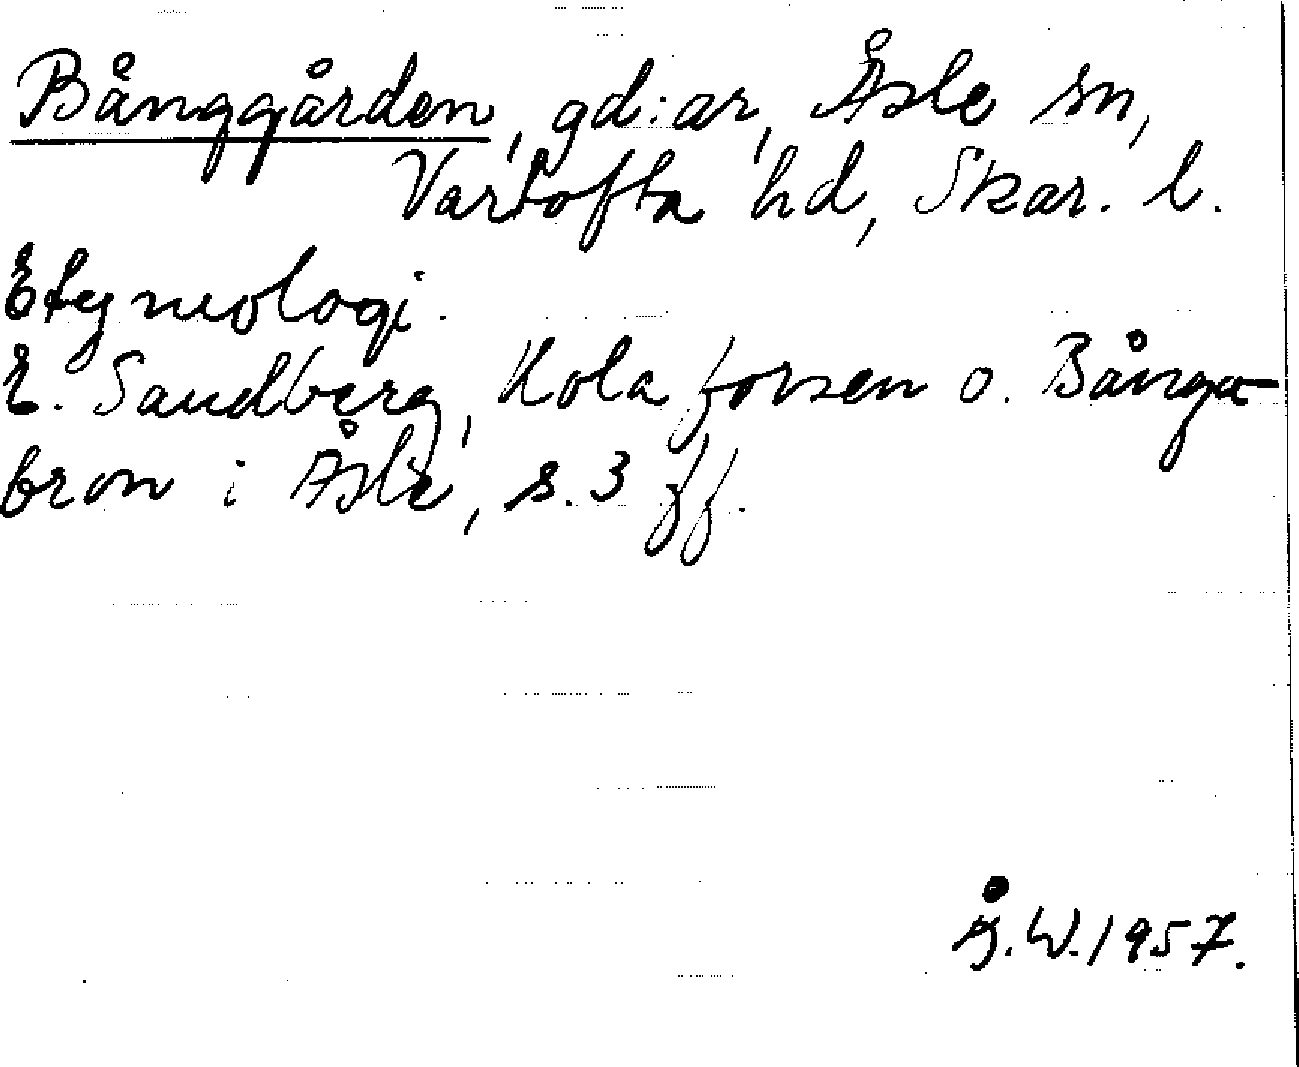 Bånggården, gd:ar, Åsle sn,
Vartofta hd, Skar. l.
Etymologi.
E. Sandberg, Kola forsen o. Bånga-
bron i Åsle, s. 3 ff.
Å.W.1957.